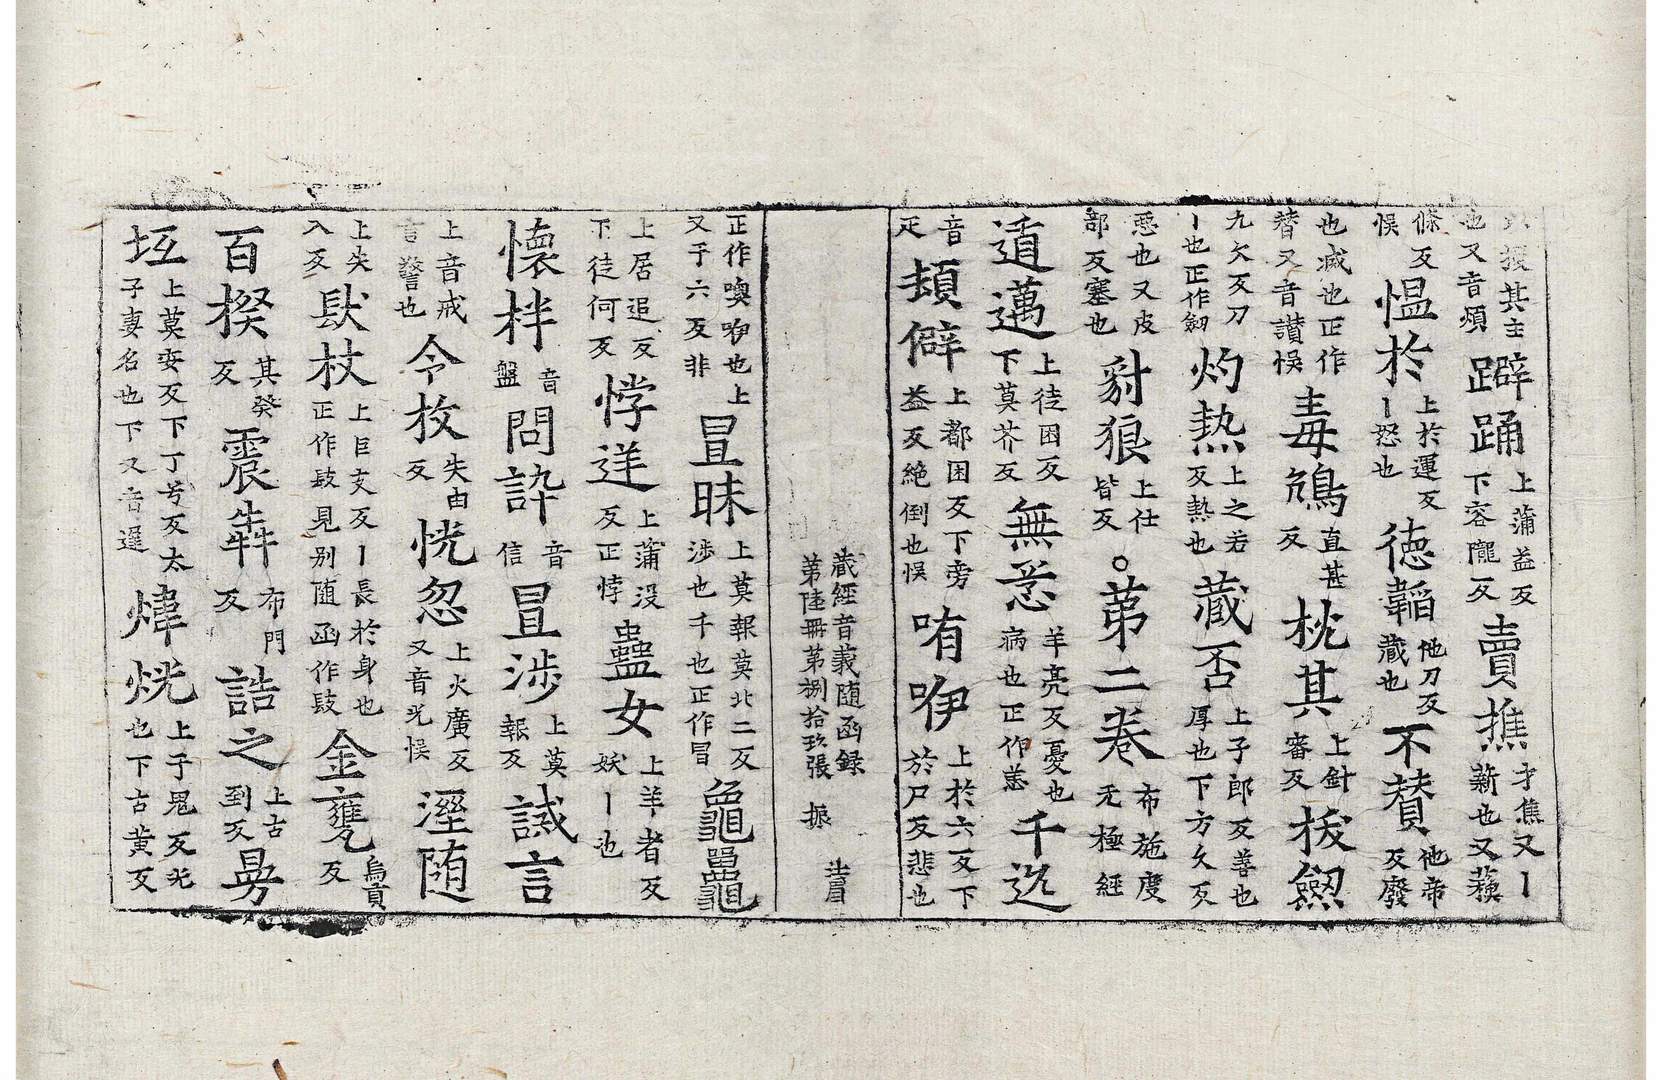 以援其主也又音煩躃踊上蒲益反下容隴反賣撨才焦又丨薪也又
條反悞愠於上於運反丨怒也德韜他刀反藏也不賛他帝反廢
也滅也正作替又音讃悞毒鴆直甚反枕其上針審反拔劔
九欠反刀丨也正作劒灼熱上之若反熱也臧否上子郎反善也厚也下方久反
惡也又皮部反塞也豺狼上仕皆反。第二卷布施度无極經
遁邁上徒困反下莫芥反無恙羊亮反憂也病也正作恙千迄
音疋頓僻上都困反下旁益反絶倒也悞哊咿上於六反下於尸反悲也
藏經音義随函録
第陸冊第捌拾玖張 振
正作噢咿也上又于六反非冒昧上莫報莫北二反涉也千也正作冒龜鼉
上居追反下徒何反悖逆上蒲没反正悖蠱女上羊者反妖丨也
懷柈音盤問訊音信冒涉上莫報反誡言
上音戒言警也令收失由反恍忽上火廣反又音光悞溼随
上失入反杖上巨支反丨長於身也正作見别随函作金甕烏貢反
百揆其癸反震犇布門反誥之上古到反
坘上莫安反下丁兮反太子妻名也下又音遲煒烑上于鬼反光也下古黄反